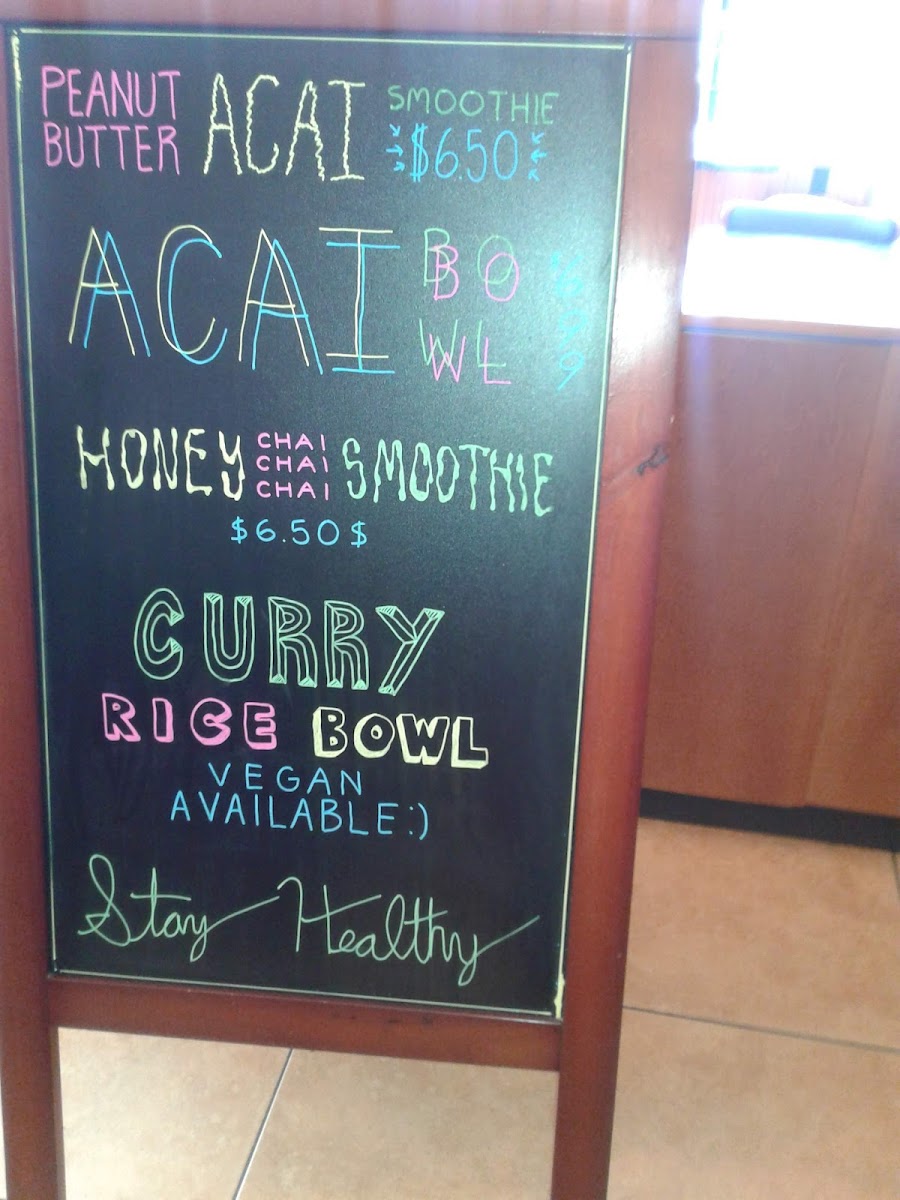 PEANUT BUTTER ACAI SMOOTHIE
$6.50
ACAI BOWL
HONEY CHAI CHAI CHAI SMOOTHIE
$6.50$
CURRY
RICE BOWL
VEGAN
AVAILABLE:)
Stay Healthy